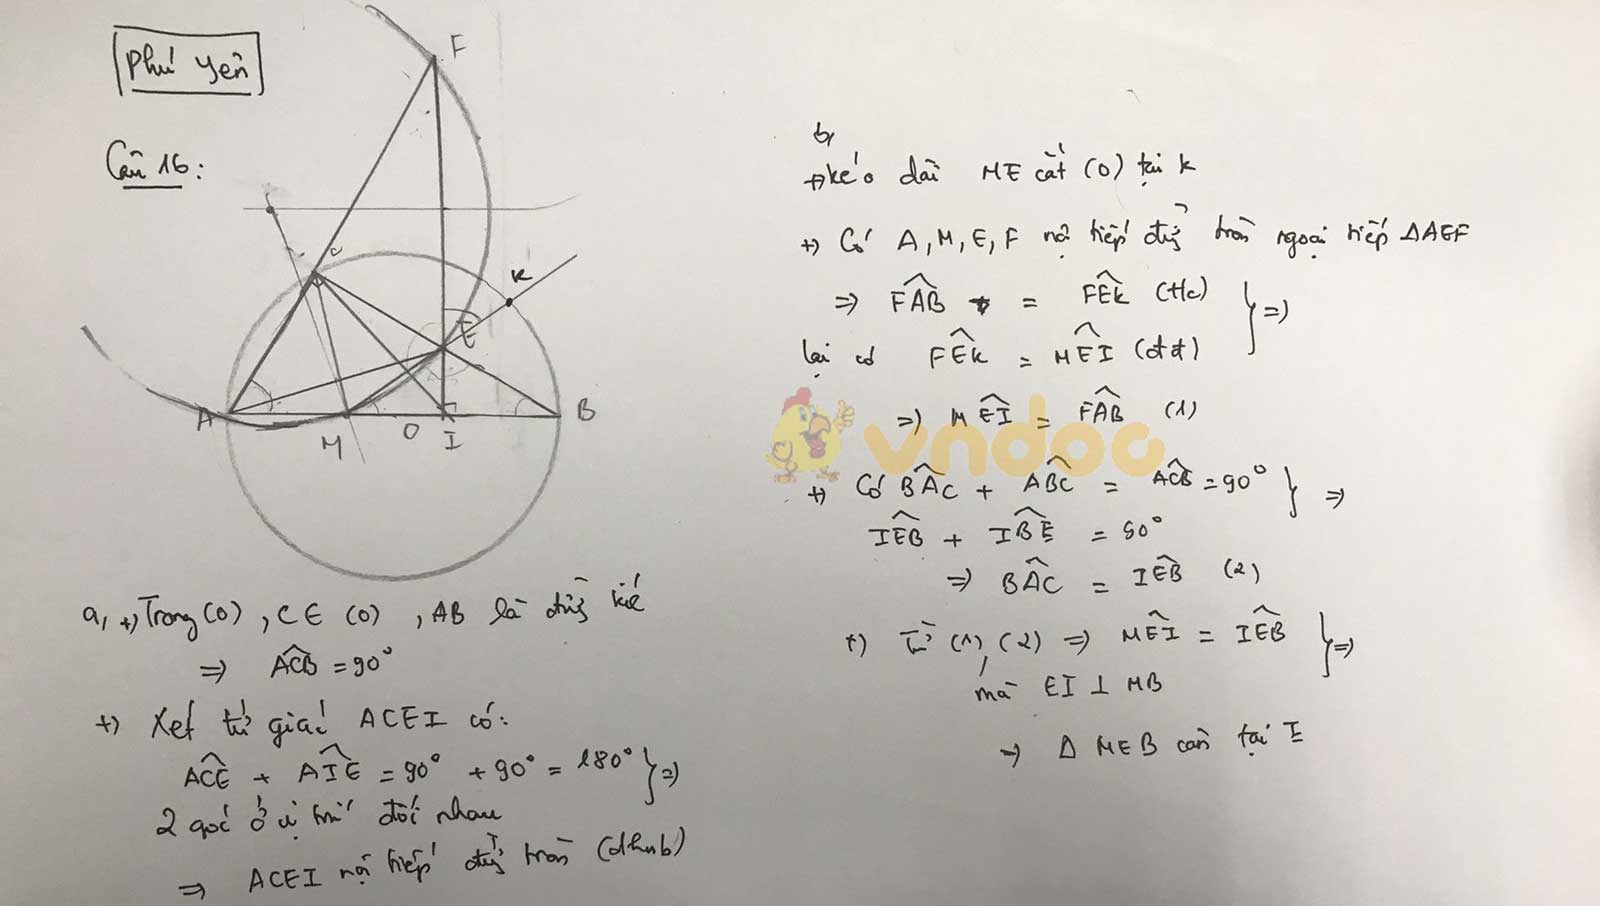 Phú Yên
Câu 16:
F
C
K
E
A
M
O
I
B
a, +) Trong (O), C ∈ (O), AB là đường kí
=> ACB = 90°
+) Xét tứ giác ACEI có:
ACE + AIE = 90° + 90° = 180° } =>
2 góc ở vị trí đối nhau
=> ACEI nội tiếp đường tròn (dhnb)
b,
+) kéo dài ME cắt (O) tại K
+) Có A, M, E, F nội tiếp đường tròn ngoại tiếp ΔAEF
=> FAB = FEK (t/c) } =>
lại có FEK = MEI (đđ)
=> MEI = FAB (1)
vndoc
+) Có BAC + ABC = ACB = 90° } =>
IEB + IBE = 90°
=> BAC = IEB (2)
+) Từ (1), (2) => MEI = IEB } =>
mà EI ⊥ MB
=> Δ MEB cân tại I